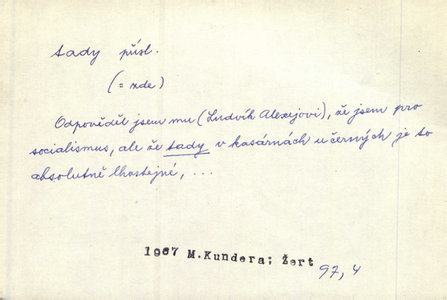 tady přísl.
(= zde)
Odpověděl jsem mu (Ludvík Alexejovi), že jsem pro
socialismus, ale že tady v kasárnách u černých je to
absolutně lhostejné, ...
1967 M.Kundera; Žert
97, 4